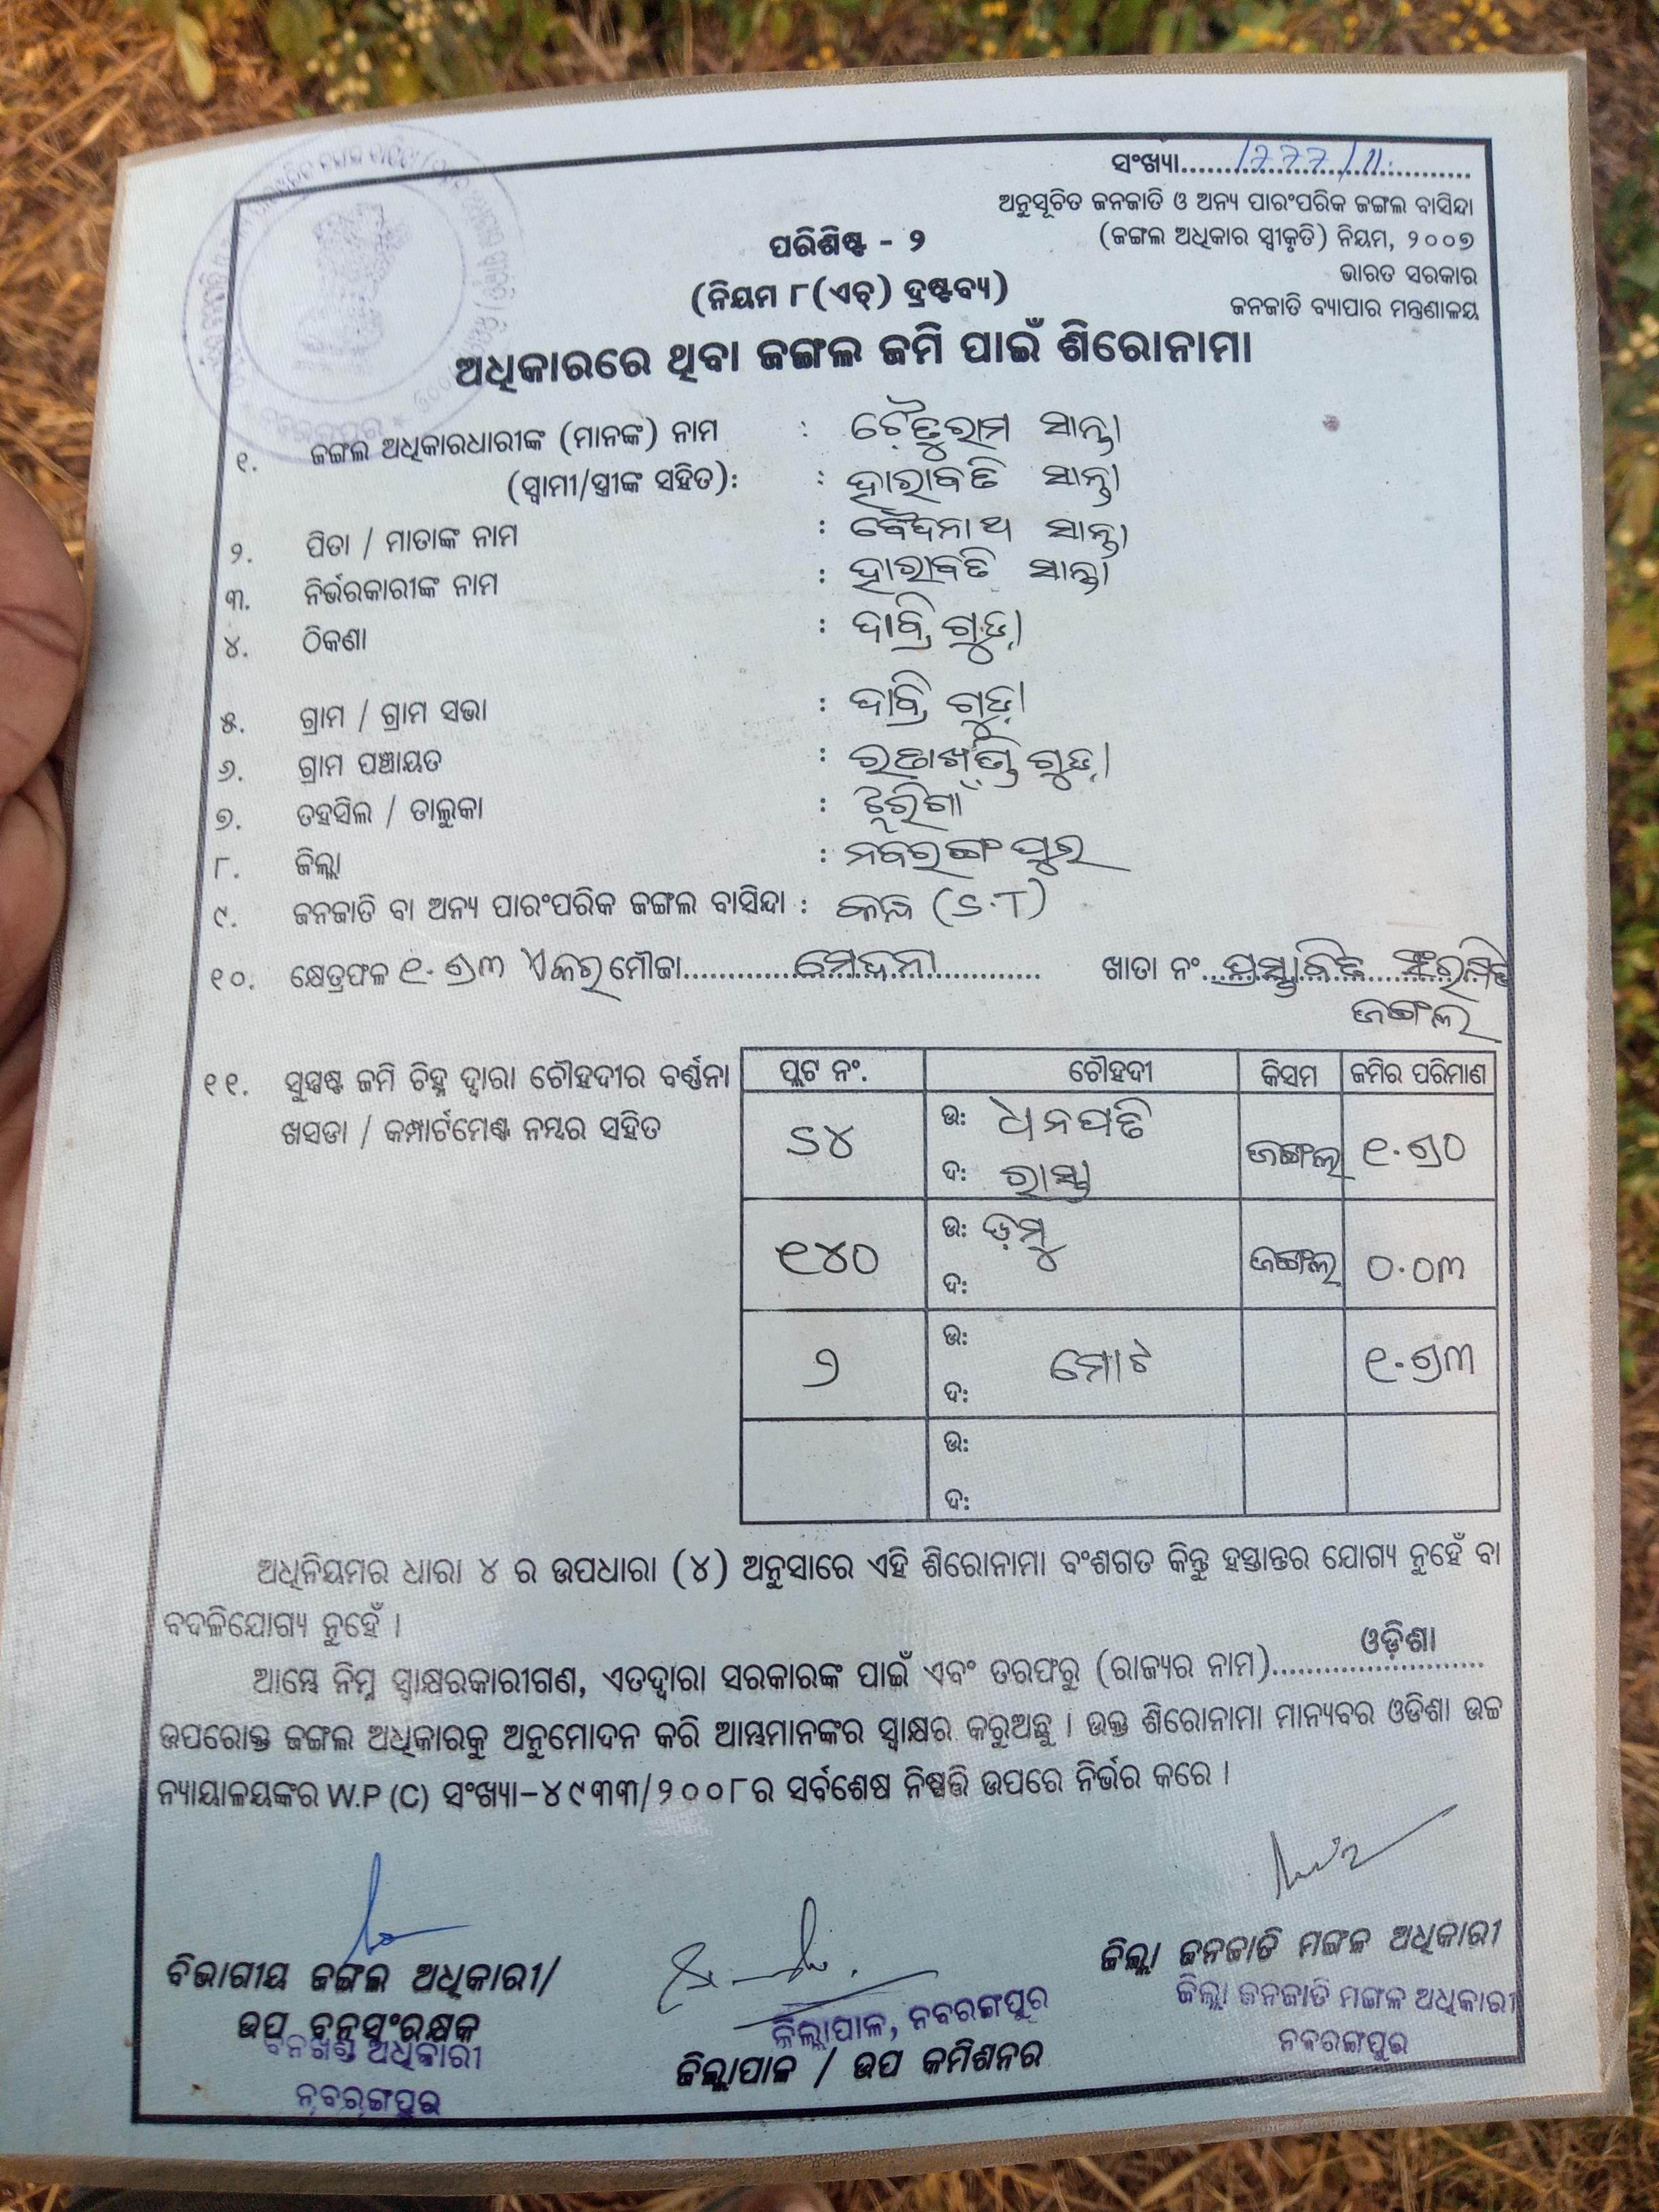 ସଂଖ୍ୟା.......1777/11............
ଅନୁସୂଚିତ ଜନଜାତି ଓ ଅନ୍ୟ ପାରଂପରିକ ଜଙ୍ଗଲ ବାସିନ୍ଦା
(ଜଙ୍ଗଲ ଅଧିକାର ସ୍ୱୀକୃତି) ନିୟମ, ୨୦୦୭
ଭାରତ ସରକାର
ଜନଜାତି ବ୍ୟାପାର ମନ୍ତ୍ରଣାଳୟ
ପରିଶିଷ୍ଟ - ୨
(ନିୟମ ୮(ଏଚ୍) ଦ୍ରଷ୍ଟବ୍ୟ)
ଅଧିକାରରେ ଥିବା ଜଙ୍ଗଲ ଜମି ପାଇଁ ଶିରୋନାମା
୧. ଜଙ୍ଗଲ ଅଧିକାରଧାରୀଙ୍କ (ମାନଙ୍କ) ନାମ : ଚୈତୁରାମ ସାନ୍ତା
(ସ୍ୱାମୀ/ସ୍ତ୍ରୀଙ୍କ ସହିତ): : ହାରାବତି ସାନ୍ତା
୨. ପିତା / ମାତାଙ୍କ ନାମ : ବୈଦନାଥ ସାନ୍ତା
୩. ନିର୍ଭରକାରୀଙ୍କ ନାମ : ହାରାବତି ସାନ୍ତା
୪. ଠିକଣା : ଦାବ୍ରିଗୁଡ଼ା
୫. ଗ୍ରାମ / ଗ୍ରାମ ସଭା : ଦାବ୍ରିଗୁଡ଼ା
୬. ଗ୍ରାମ ପଞ୍ଚାୟତ :
୭. ତହସିଲ / ତାଲୁକା : ଝରିଗାଁ
୮. ଜିଲ୍ଲା : ନବରଙ୍ଗପୁର
୯. ଜନଜାତି ବା ଅନ୍ୟ ପାରଂପରିକ ଜଙ୍ଗଲ ବାସିନ୍ଦା : କନ୍ଧ (S.T)
୧୦. କ୍ଷେତ୍ରଫଳ ୧.୬୩ ଏକର ମୌଜା.......ମେଦନା....... ଖାତା ନଂ...ପ୍ରସ୍ତାବିତ ସଂରକ୍ଷିତ
ଜଙ୍ଗଲ
୧୧. ସୁସ୍ପଷ୍ଟ ଜମି ଚିହ୍ନ ଦ୍ୱାରା ଚୌହଦୀର ବର୍ଣ୍ଣନା
ଖସଡା / କମ୍ପାର୍ଟମେଣ୍ଟ ନମ୍ବର ସହିତ
ପ୍ଲଟ ନଂ. ଚୌହଦୀ କିସମ ଜମିର ପରିମାଣ
୪ ଉ: ଧନପତି ଜଙ୍ଗଲ ୧.୬୦
ଦ: ରାସ୍ତା
୧୪୦ ଉ: ଡମ୍ବୁ ଜଙ୍ଗଲ ୦.୦୩
ଦ:
୨ ଉ: ମୋଟ ୧.୬୩
ଦ:
ଉ:
ଦ:
ଅଧିନିୟମର ଧାରା ୪ ର ଉପଧାରା (୪) ଅନୁସାରେ ଏହି ଶିରୋନାମା ବଂଶଗତ କିନ୍ତୁ ହସ୍ତାନ୍ତର ଯୋଗ୍ୟ ନୁହେଁ ବା
ବଦଳିଯୋଗ୍ୟ ନୁହେଁ ।
ଆମ୍ଭେ ନିମ୍ନ ସ୍ୱାକ୍ଷରକାରୀଗଣ, ଏତଦ୍ୱାରା ସରକାରଙ୍କ ପାଇଁ ଏବଂ ତରଫରୁ (ରାଜ୍ୟର ନାମ).......ଓଡ଼ିଶା.......
ଉପରୋକ୍ତ ଜଙ୍ଗଲ ଅଧିକାରକୁ ଅନୁମୋଦନ କରି ଆମ୍ଭମାନଙ୍କର ସ୍ୱାକ୍ଷର କରୁଅଛୁ । ଉକ୍ତ ଶିରୋନାମା ମାନ୍ୟବର ଓଡିଶା ଉଚ୍ଚ
ନ୍ୟାୟାଳୟଙ୍କର W.P (C) ସଂଖ୍ୟା-୪୯୩୩/୨୦୦୮ର ସର୍ବଶେଷ ନିଷ୍ପତ୍ତି ଉପରେ ନିର୍ଭର କରେ ।
ବିଭାଗୀୟ ଜଙ୍ଗଲ ଅଧିକାରୀ/
ଉପ ବନସଂରକ୍ଷକ
ବନଖଣ୍ଡ ଅଧିକାରୀ
ନବରଙ୍ଗପୁର
ଜିଲ୍ଲାପାଳ, ନବରଙ୍ଗପୁର
ଜିଲ୍ଲାପାଳ / ଉପ କମିଶନର
ଜିଲ୍ଲା ଜନଜାତି ମଙ୍ଗଳ ଅଧିକାରୀ
ଜିଲ୍ଲା ଜନଜାତି ମଙ୍ଗଳ ଅଧିକାରୀ
ନବରଙ୍ଗପୁର